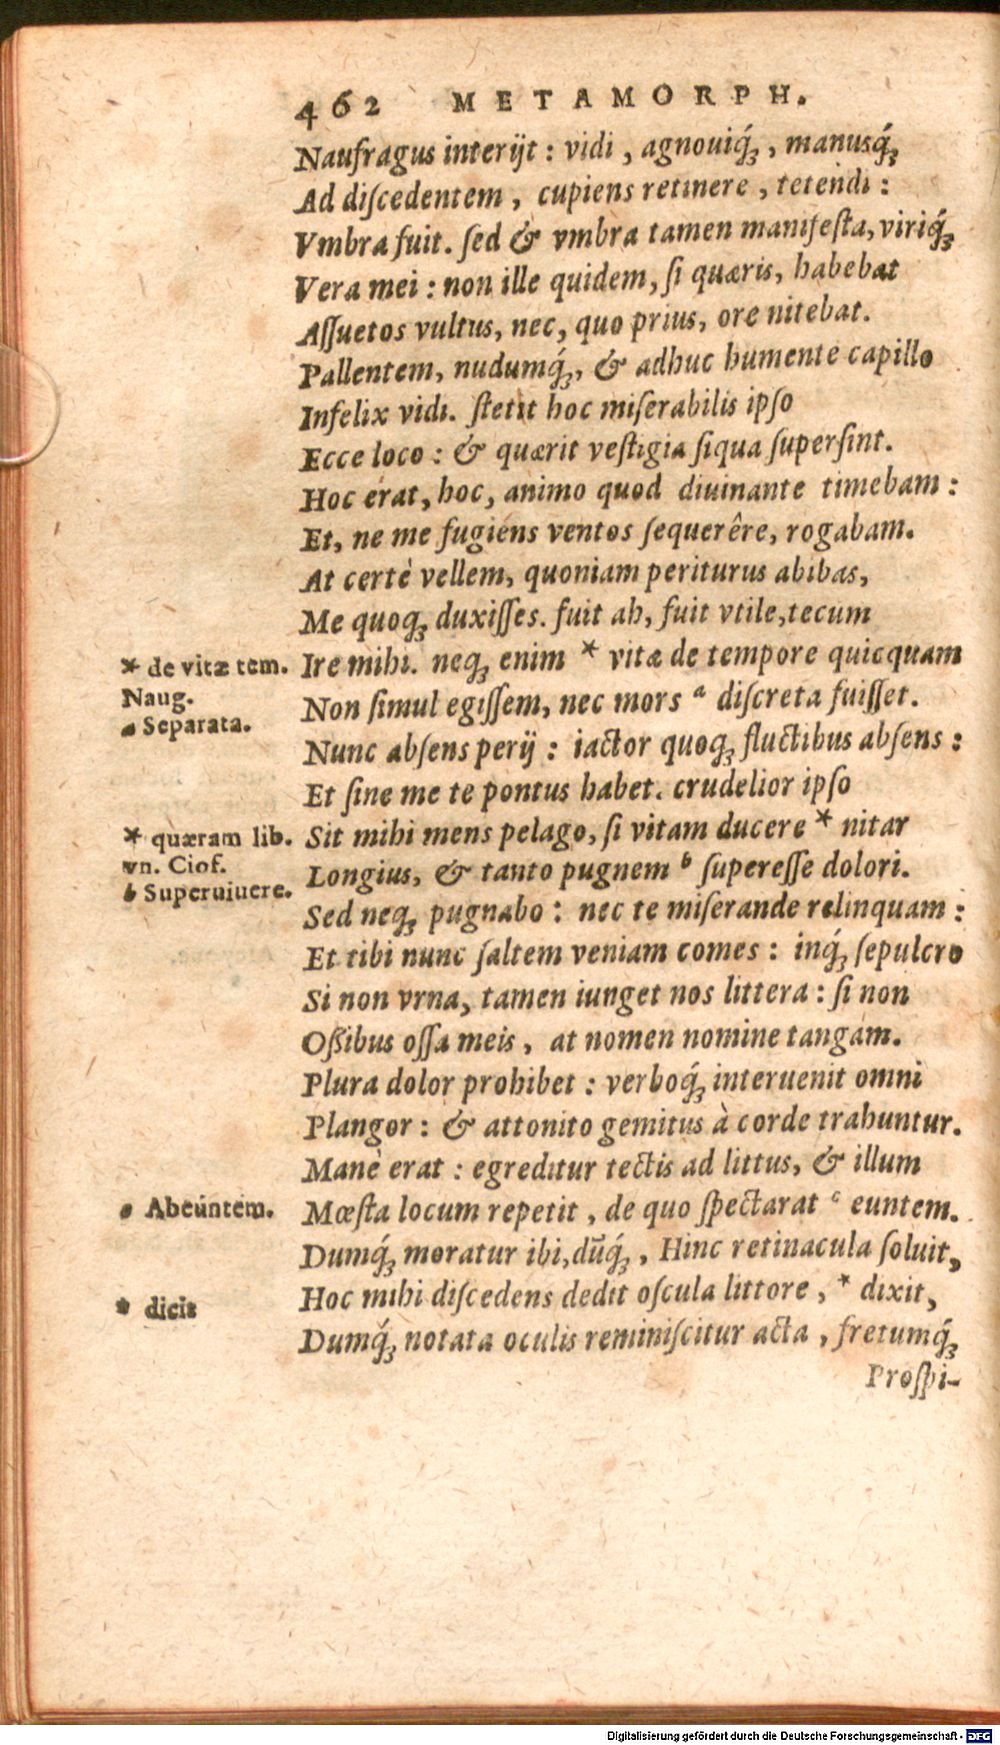 462 METAMORPH.
Naufragus interijt : vidi , agnouiq́ꝫ , manusq́ꝫ
Ad diſcedentem , cupiens retinere , tetendi :
Vmbra fuit. ſed & vmbra tamen manifeſta, viriq́ꝫ
Vera mei : non ille quidem, ſi quæris, habebat
Aſſuetos vultus, nec, quo prius, ore nitebat.
Pallentem, nudumq́ꝫ, & adhuc humente capillo
Infelix vidi. ſtetit hoc miſerabilis ipſo
Ecce loco : & quærit veſtigia ſiqua ſuperſint.
Hoc erat, hoc, animo quod diuinante timebam :
Et, ne me fugiens ventos ſequerêre, rogabam.
At certè vellem, quoniam periturus abibas,
Me quoqꝫ duxiſſes. fuit ah, fuit vtile, tecum
* de vitæ tem.
Naug.
Ire mihi. neqꝫ enim * vitæ de tempore quicquam
a Separata.
Non ſimul egiſſem, nec mors a diſcreta fuiſſet.
Nunc abſens perij : iactor quoqꝫ fluctibus abſens :
Et ſine me te pontus habet. crudelior ipſo
* quæram lib.
vn. Ciof.
Sit mihi mens pelago, ſi vitam ducere * nitar
b Superuiuere.
Longius, & tanto pugnem b ſupereſſe dolori.
Sed neqꝫ pugnabo : nec te miſerande relinquam :
Et tibi nunc ſaltem veniam comes : inq́ꝫ ſepulcro
Si non vrna, tamen iunget nos littera : ſi non
Oßibus oſſa meis , at nomen nomine tangam.
Plura dolor prohibet : verboq́ꝫ interuenit omni
Plangor : & attonito gemitus à corde trahuntur.
Manè erat : egreditur tectis ad littus, & illum
c Abeuntem.
Mœſta locum repetit , de quo ſpectarat c euntem.
Dumq́ꝫ moratur ibi, dũq́ꝫ , Hinc retinacula ſoluit,
* dicit
Hoc mihi diſcedens dedit oſcula littore , * dixit,
Dumq́ꝫ notata oculis reminiſcitur acta , fretumq́ꝫ
Proſpi-
Digitalisierung gefördert durch die Deutsche Forschungsgemeinschaft - DFG